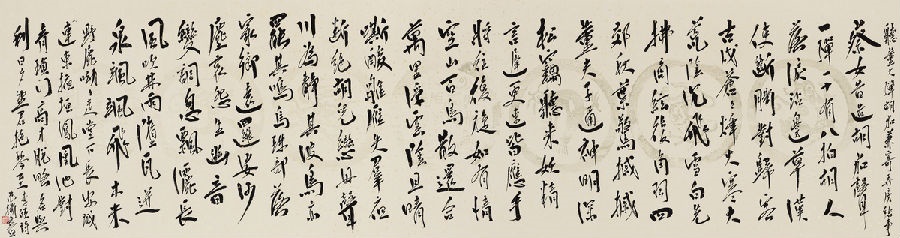 聽董大彈胡笳聲兼寄房給事
蔡女昔造胡笳聲
一彈一十有八拍胡人
落淚沾邊草漢
使斷腸對歸客
古戍蒼蒼烽火寒大
荒陰沉飛雪白先
拂商絃後角羽四
郊秋葉驚摵摵
董夫子通神明深
松竊聽來妖精
言遲更速皆應手
將往復旋如有情
空山百鳥散還合
萬里浮雲陰且晴
嘶酸雛雁失羣夜
斷絕胡兒戀母聲
川為靜其波鳥亦
罷其鳴烏珠部落
家鄉遠邏娑沙
塵哀怨生幽音
變調忽飄灑長
風吹林雨墮瓦迸
泉颯颯飛木末
野鹿呦呦走堂下長安城
連東掖垣鳳凰池對
青瑣門高才脫略名與
利日夕望君抱琴至